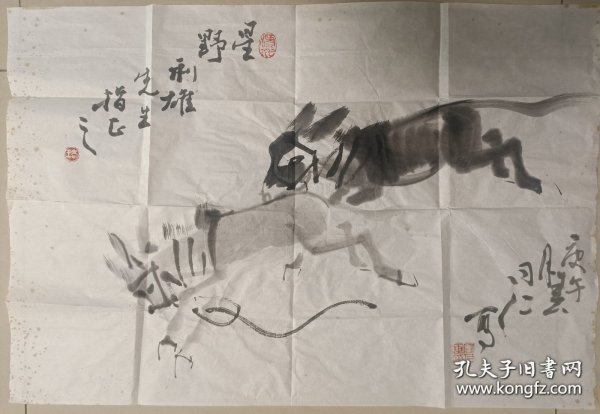 星野
利雄
先生
指正
之
庚午
写
孔夫子旧书网
www.kongfz.com